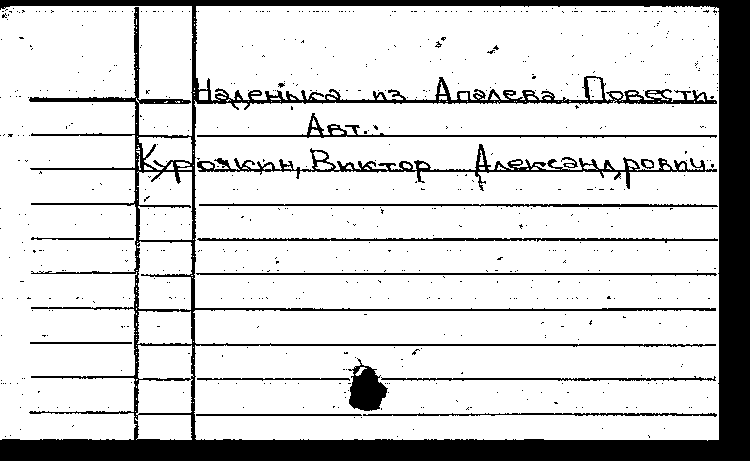 Наденька из Апалева. Повести.
Авт.:
Курочкин, Виктор Александрович.